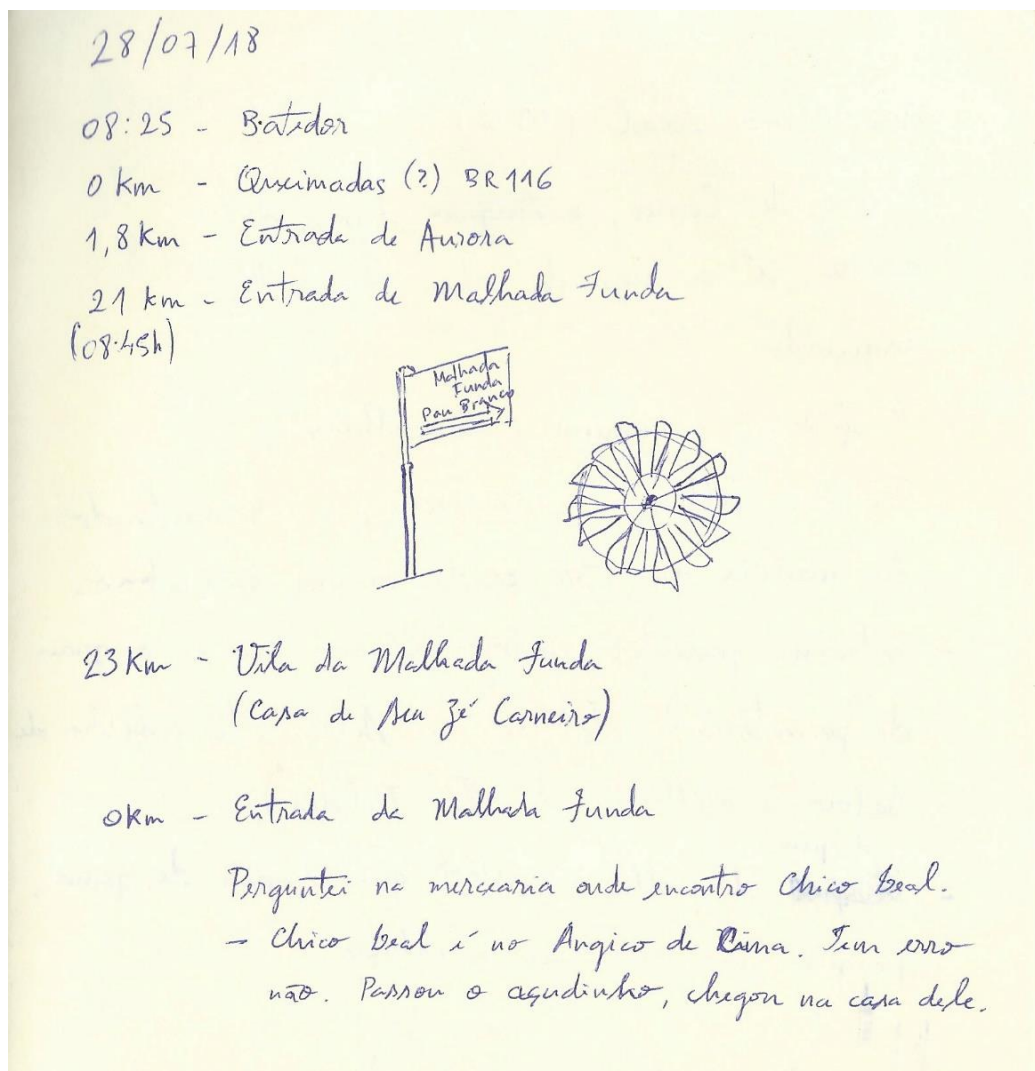 28/07/18
08:25 - Batedor
0 km - Queimadas (?) BR116
1,8 km - Entrada de Aurora
21 km - Entrada de Malhada Funda
(08:45h)
Malhada
Funda
Pau Branco
23 Km - Vila da Malhada Funda
(Casa de Seu Zé Carneiro)
0Km - Entrada da Malhada Funda
Perguntei na mercearia onde encontro Chico Leal.
- Chico Leal é no Angico de Cima. Tem erro
não. Passou o açudinho, chegou na casa dele.